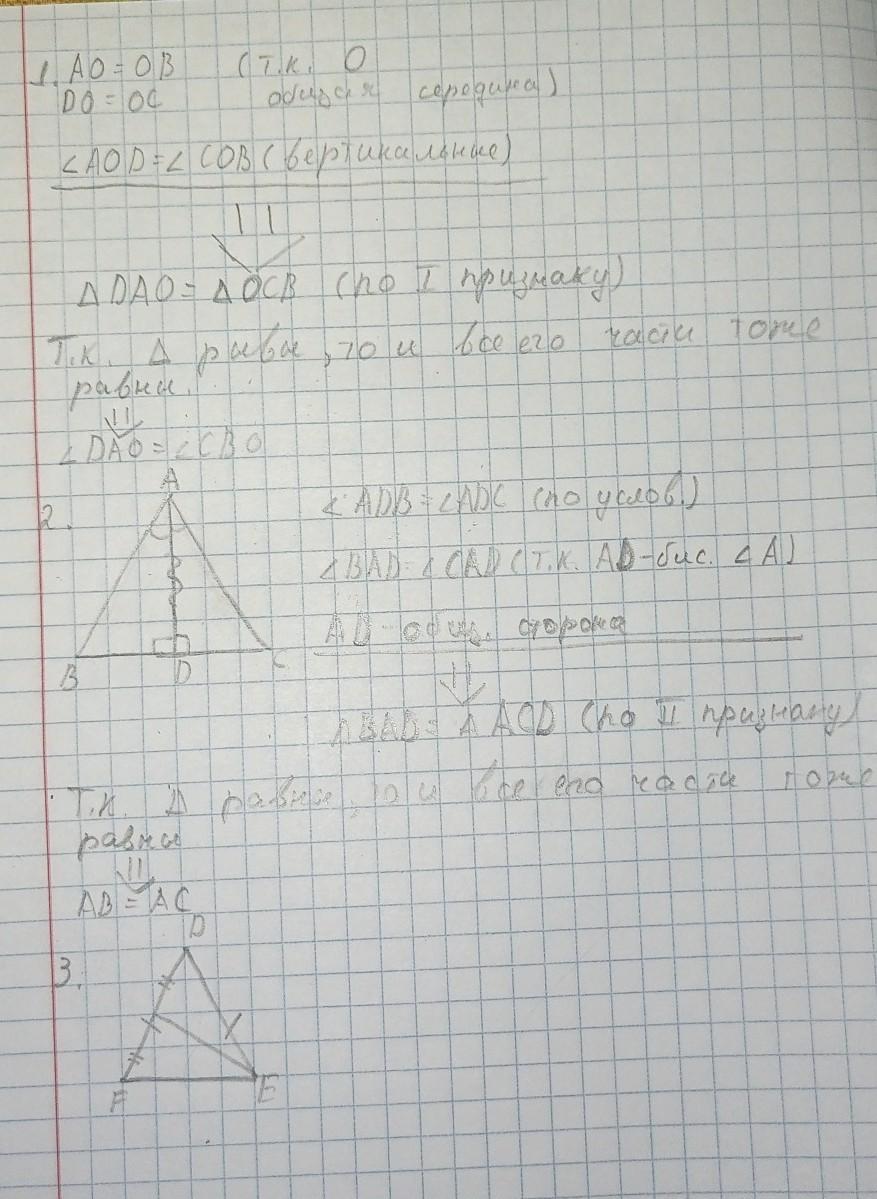 1. AO = OB (т.к. O
DO = OC общая середина)
∠AOD = ∠COB (вертикальные)
ΔDAO = ΔOCB (по I признаку)
Т.к. Δ равны, то и все его части тоже
равны.
∠DAO = ∠CBO
2.
A
B
D
C
∠ADB = ∠ADC (по услов.)
∠BAD = ∠CAD (т.к. AD - бис. ∠A)
AD - общ. сторона
ΔBAD = ΔACD (по II признаку)
Т.к. Δ равны, то и все его части тоже
равны
AB = AC
3.
D
F
E